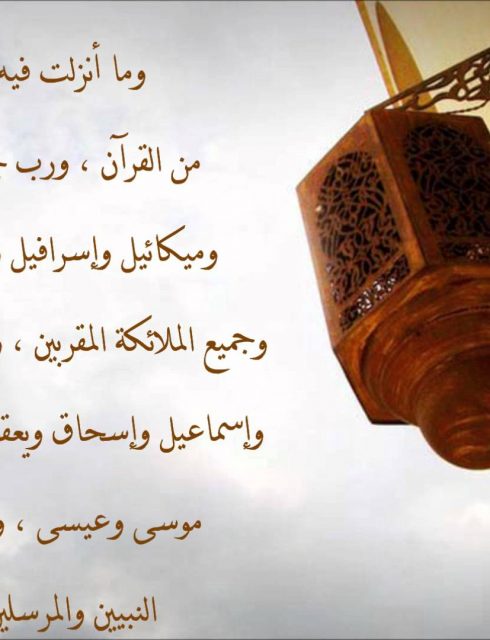 وما أنزلت فيه
من القرآن ، ورب
وميكائيل وإسرافيل
وجميع الملائكة المقربين ،
وإسماعيل وإسحاق
موسى وعيسى ،
النبيين والمرسلين